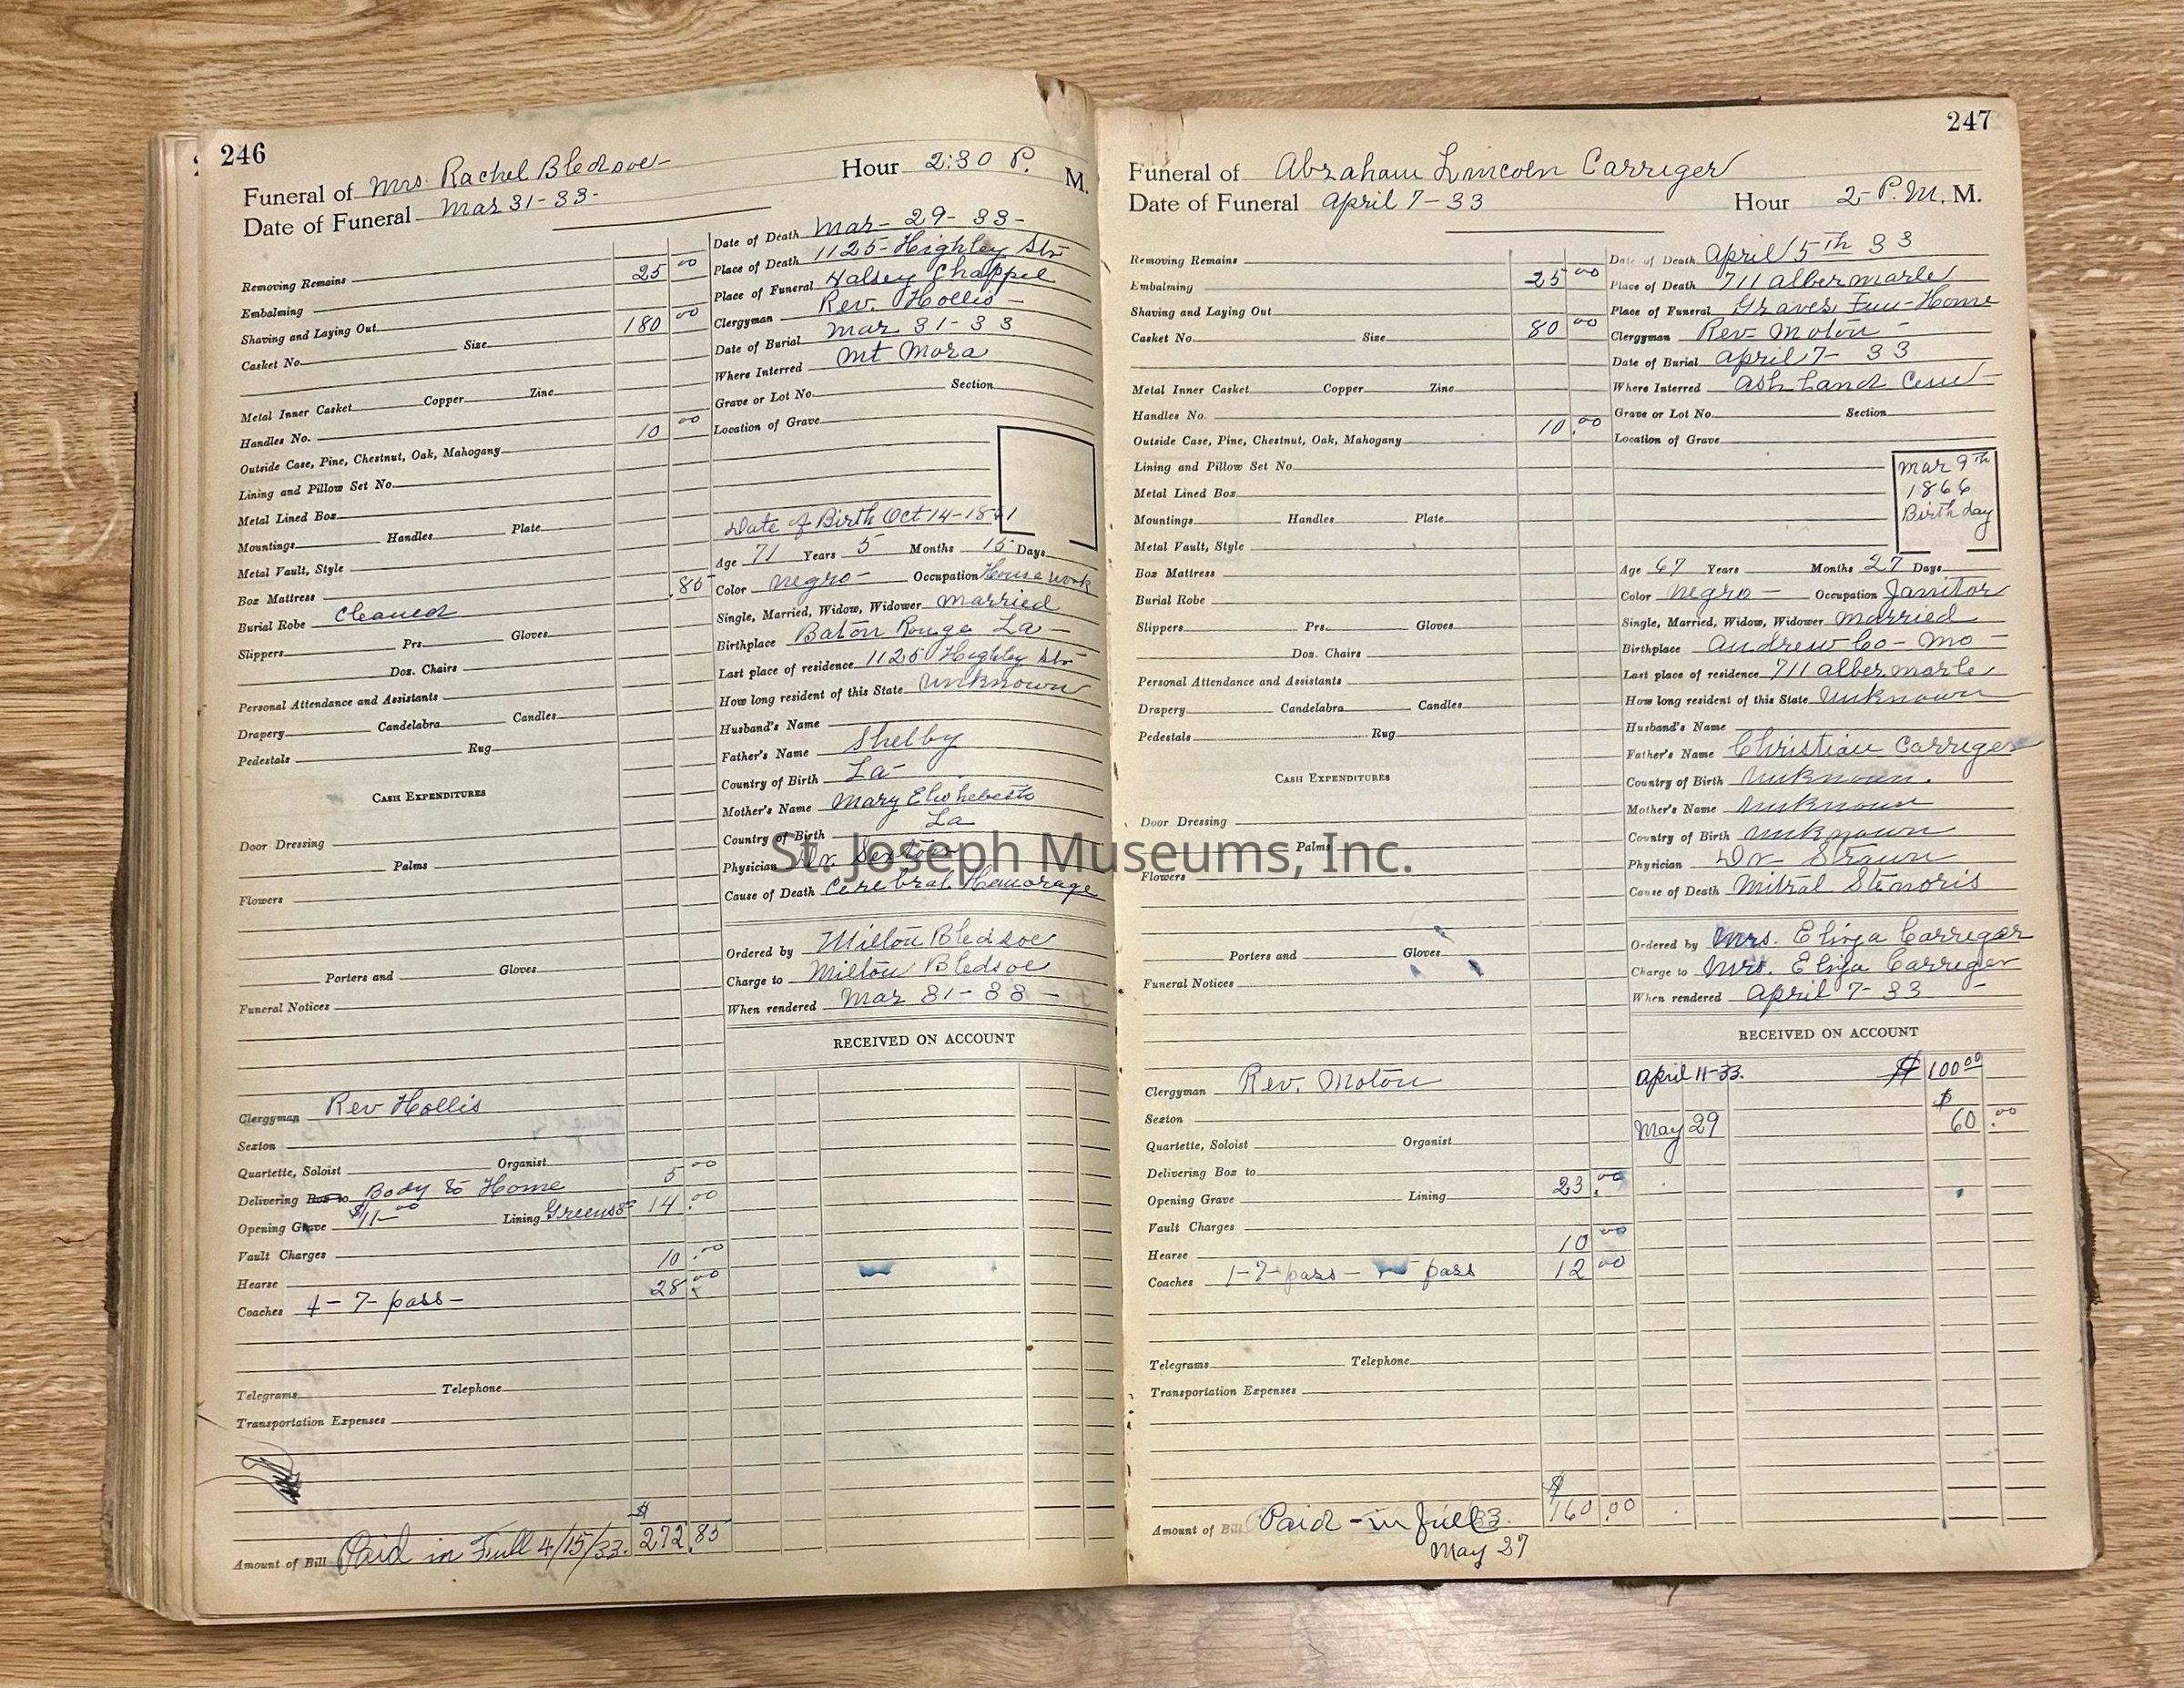 246
Funeral of Mrs. Rachel Bledsoe
Hour 2:30 P. M.
Date of Funeral Mar 31-33-
Removing Remains
Embalming 25 00
Shaving and Laying Out
Casket No. Size 180 00
Metal Inner Casket Copper Zinc
Handles No.
Outside Case, Pine, Chestnut, Oak, Mahogany 10 00
Lining and Pillow Set No.
Metal Lined Box
Mountings Handles Plate
Metal Vault, Style
Box Mattress
Burial Robe Cleaned .85
Slippers Prs. Gloves
Doz. Chairs
Personal Attendance and Assistants
Drapery Candelabra Candles
Pedestals Rug
CASH EXPENDITURES
Door Dressing
Palms
Flowers
Porters and Gloves
Funeral Notices
Clergyman Rev Hollis
Sexton
Quartette, Soloist Organist
Delivering Box to Body to Home 5 00
Opening Grave $11-00 Lining Greens 14.00
Vault Charges
Hearse 10.00
Coaches 4-7-pass- 28 00
Telegrams Telephone
Transportation Expenses
Amount of Bill Paid in Full 4/15/33. $272.85
Date of Death Mar-29-33-
Place of Death 1125-Highley Str
Place of Funeral Halsey Chappel
Clergyman Rev. Hollis-
Date of Burial Mar 31-33
Where Interred Mt Mora
Grave or Lot No. Section
Location of Grave
Date of Birth Oct 14-1861
Age 71 Years 5 Months 15 Days
Color negro- Occupation House work
Single, Married, Widow, Widower married
Birthplace Baton Rouge La-
Last place of residence 1125 Highley Str-
How long resident of this State unknown
Husband's Name
Father's Name Shelby
Country of Birth La-
Mother's Name Mary
Country of Birth La
Physician Dr.
Cause of Death Cerebral Hemorage
Ordered by Milton Bledsoe
Charge to Milton Bledsoe
When rendered Mar 31-33-
RECEIVED ON ACCOUNT
St. Joseph Museums, Inc.
247
Funeral of Abraham Lincoln Carriger
Date of Funeral April 7-33 Hour 2-P.M. M.
Removing Remains
Embalming 25 00
Shaving and Laying Out
Casket No. Size 80 00
Metal Inner Casket Copper Zinc
Handles No.
Outside Case, Pine, Chestnut, Oak, Mahogany 10.00
Lining and Pillow Set No.
Metal Lined Box
Mountings Handles Plate
Metal Vault, Style
Box Mattress
Burial Robe
Slippers Prs. Gloves
Doz. Chairs
Personal Attendance and Assistants
Drapery Candelabra Candles
Pedestals Rug
CASH EXPENDITURES
Door Dressing
Palms
Flowers
Porters and Gloves
Funeral Notices
Clergyman Rev. Moton
Sexton
Quartette, Soloist Organist
Delivering Box to
Opening Grave Lining 23.00
Vault Charges
Hearse 10 00
Coaches 1-7-pass- pass 12 00
Telegrams Telephone
Transportation Expenses
Amount of Bill Paid-in full 33. $160.00
May 27
Date of Death April 5th 33
Place of Death 711 albermarle
Place of Funeral Graves Fun-Home
Clergyman Rev-Moton-
Date of Burial April 7-33
Where Interred Ash Land Cem-
Grave or Lot No. Section
Location of Grave
Mar 9th
1866
Birthday
Age 67 Years Months 27 Days
Color negro- Occupation Janitor
Single, Married, Widow, Widower married
Birthplace Andrew Co-Mo-
Last place of residence 711 albermarle
How long resident of this State Unknown
Husband's Name
Father's Name Christian Carriger
Country of Birth Unknown.
Mother's Name Unknown
Country of Birth Unknown
Physician Dr-Strawn
Cause of Death Mitral Stenoris
Ordered by Mrs. Eliza Carriger
Charge to Mrs. Eliza Carriger
When rendered April 7-33-
RECEIVED ON ACCOUNT
April 11-33. $100 00
May 29 $60.00